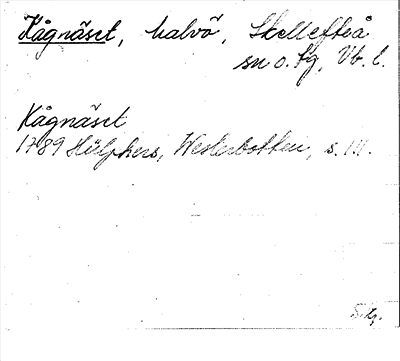 Kågnäset, halvö, Skellefteå
sn o. tg, Vb. l.
Kågnäset
1789 Hülphers, Westerbotten, s. 111.